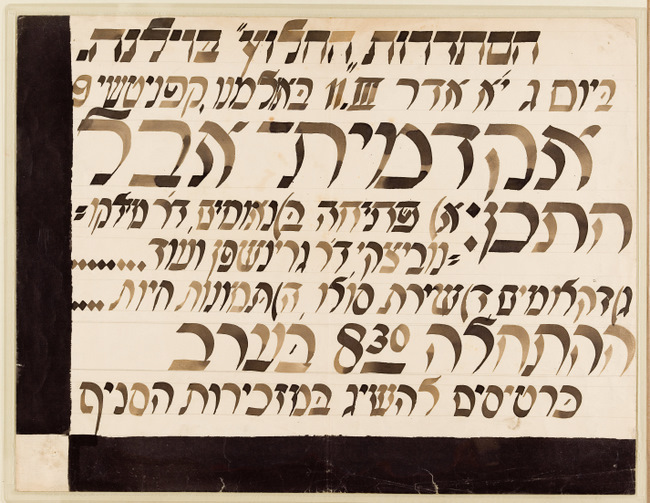 הסתדרות "החלוץ" בוילנה.
ביום ג י״א אדר 11.III באולמנו, קפניטשי 9
אקדמית־אבל
התכן: א) פתיחה ב) נאומים, ד״ר מילקו=
=נוביצקי, ד״ר גרינשפן ועוד........
ג) דקלומים, ד) שירת סולו, ה) תמונות חיות ....
ההתחלה 8³⁰ בערב
כרטיסים להשיג במזכירות הסניף